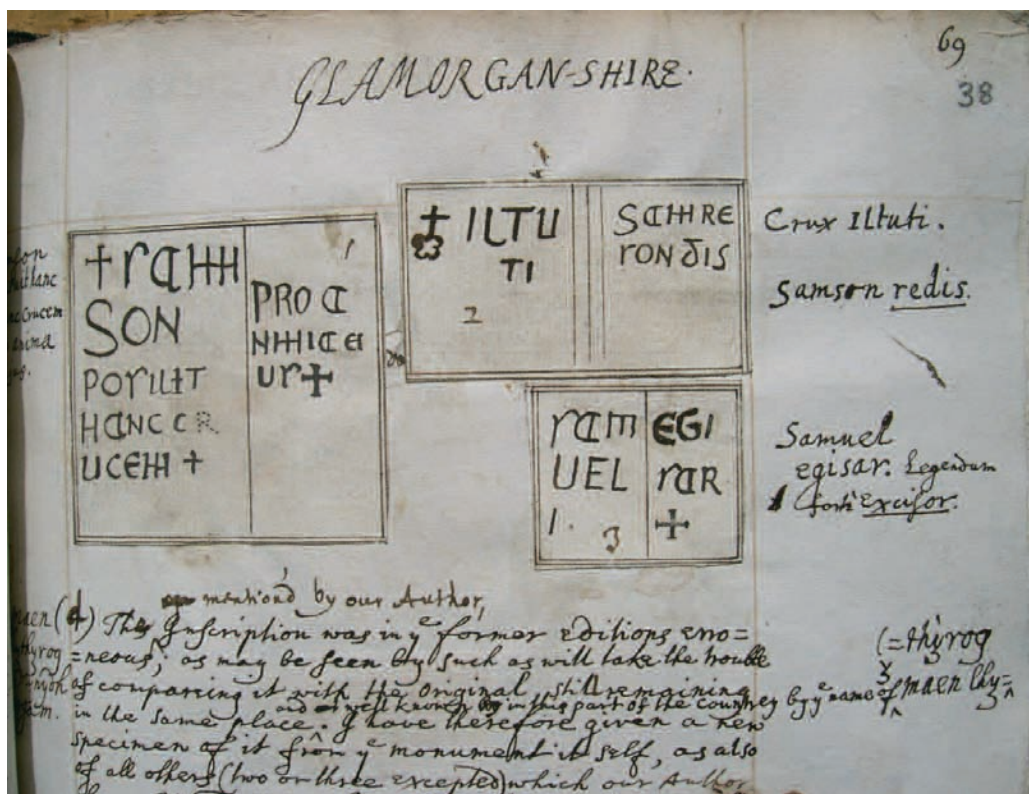 69
38
GLAMORGAN-SHIRE.
+ SAM
SON
POSUIT
HANC CR
UCEM +
1
PRO A
NMICA EI
US +
+ ILTU
TI
2
SAMRE
SON DIS
Crux Iltuti.
Samson redis.
SAM
UEL
1. 3
EGI
SAR
+
Samuel
egisar. Legendum
forte Excisor.
mention'd by our Author,
(d) The Inscription was in ye former editions erro=
=neous; as may be seen by such as will take the trouble
of comparing it with the Original, still remaining
and well known in this part of the country by ye name of maen lhy=
(=thyrog
in the same place. I have therefore given a new
specimen of it from ye monument it self, as also
of all others (two or three excepted) which our Author